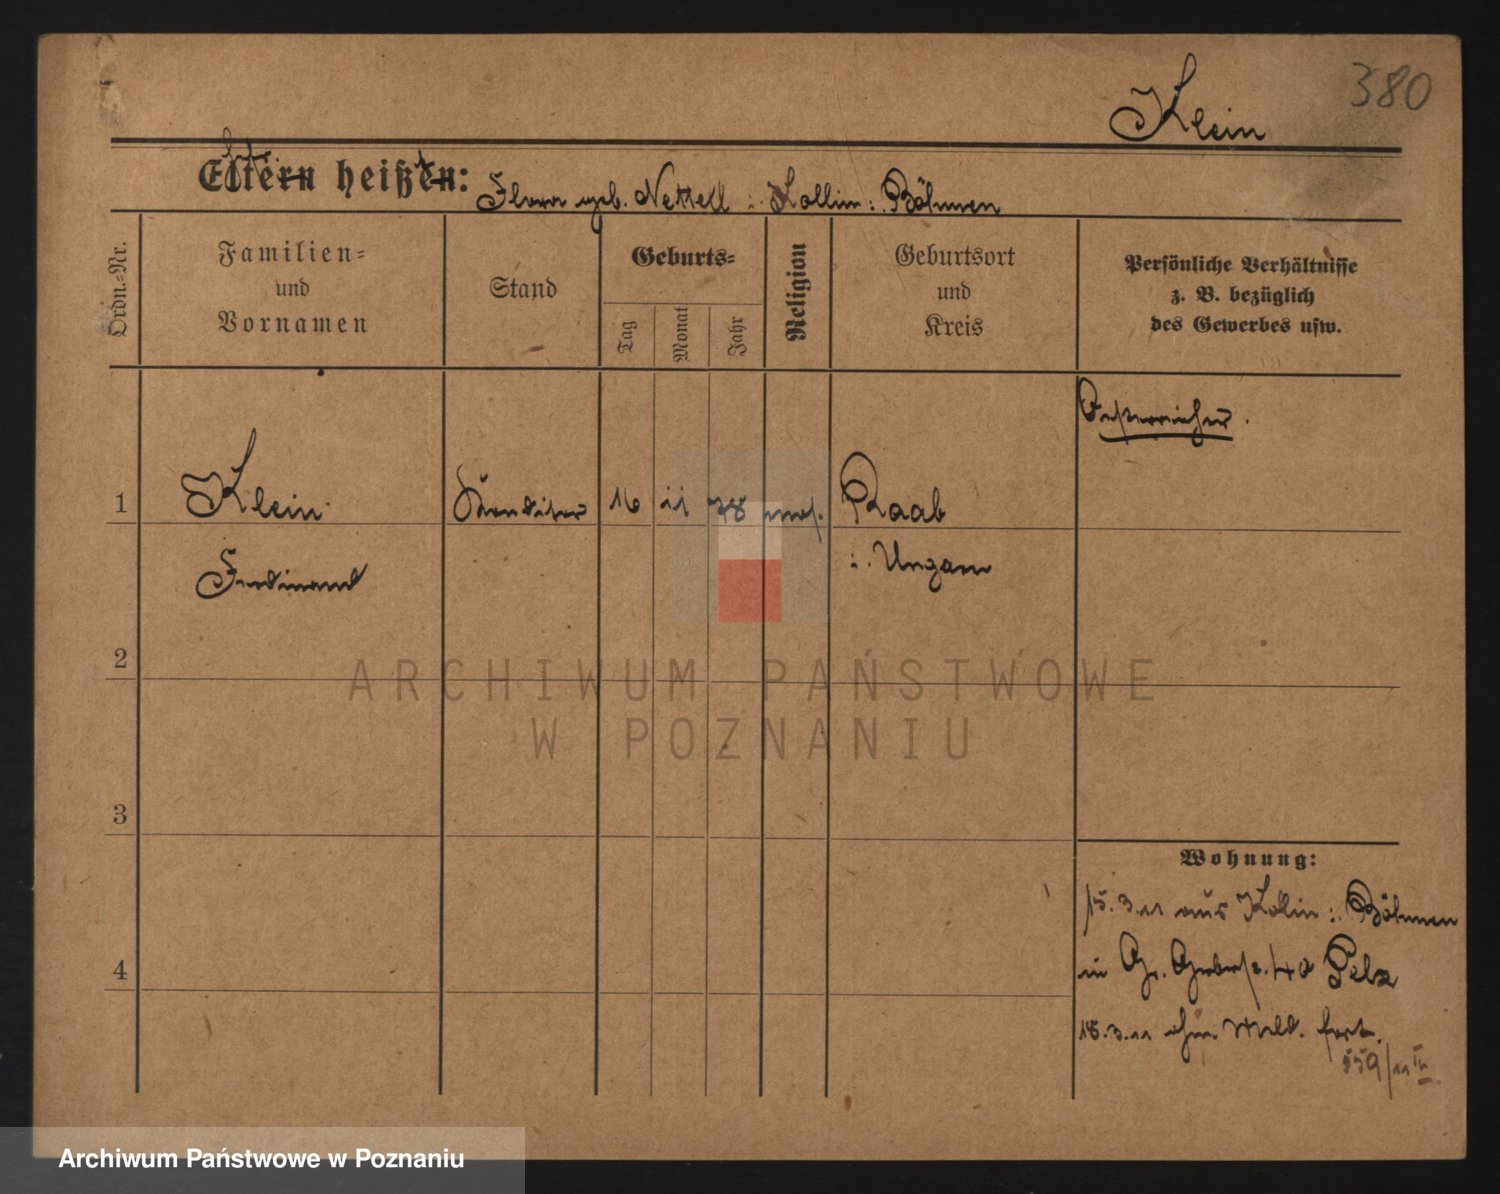 380
Klein
Eltern heißen: Flora geb. Nettell i. Kollin i. Böhmen
Ordn.-Nr.
Familien-
und
Vornamen
Stand
Geburts-
Tag
Monat
Jahr
Religion
Geburtsort
und
Kreis
Persönliche Verhältnisse
z. B. bezüglich
des Gewerbes usw.
Oesterreicher.
1 Klein Konditor 16 11 78 mos. Raab
Ferdinand i. Ungarn
2
3
4
Wohnung:
15.3.11 aus Kollin i. Böhmen
in Gr. 40 Pelz
18.3.11 ohne Meld. fort.
559/11 IV.
ARCHIWUM PAŃSTWOWE
W POZNANIU
Archiwum Państwowe w Poznaniu